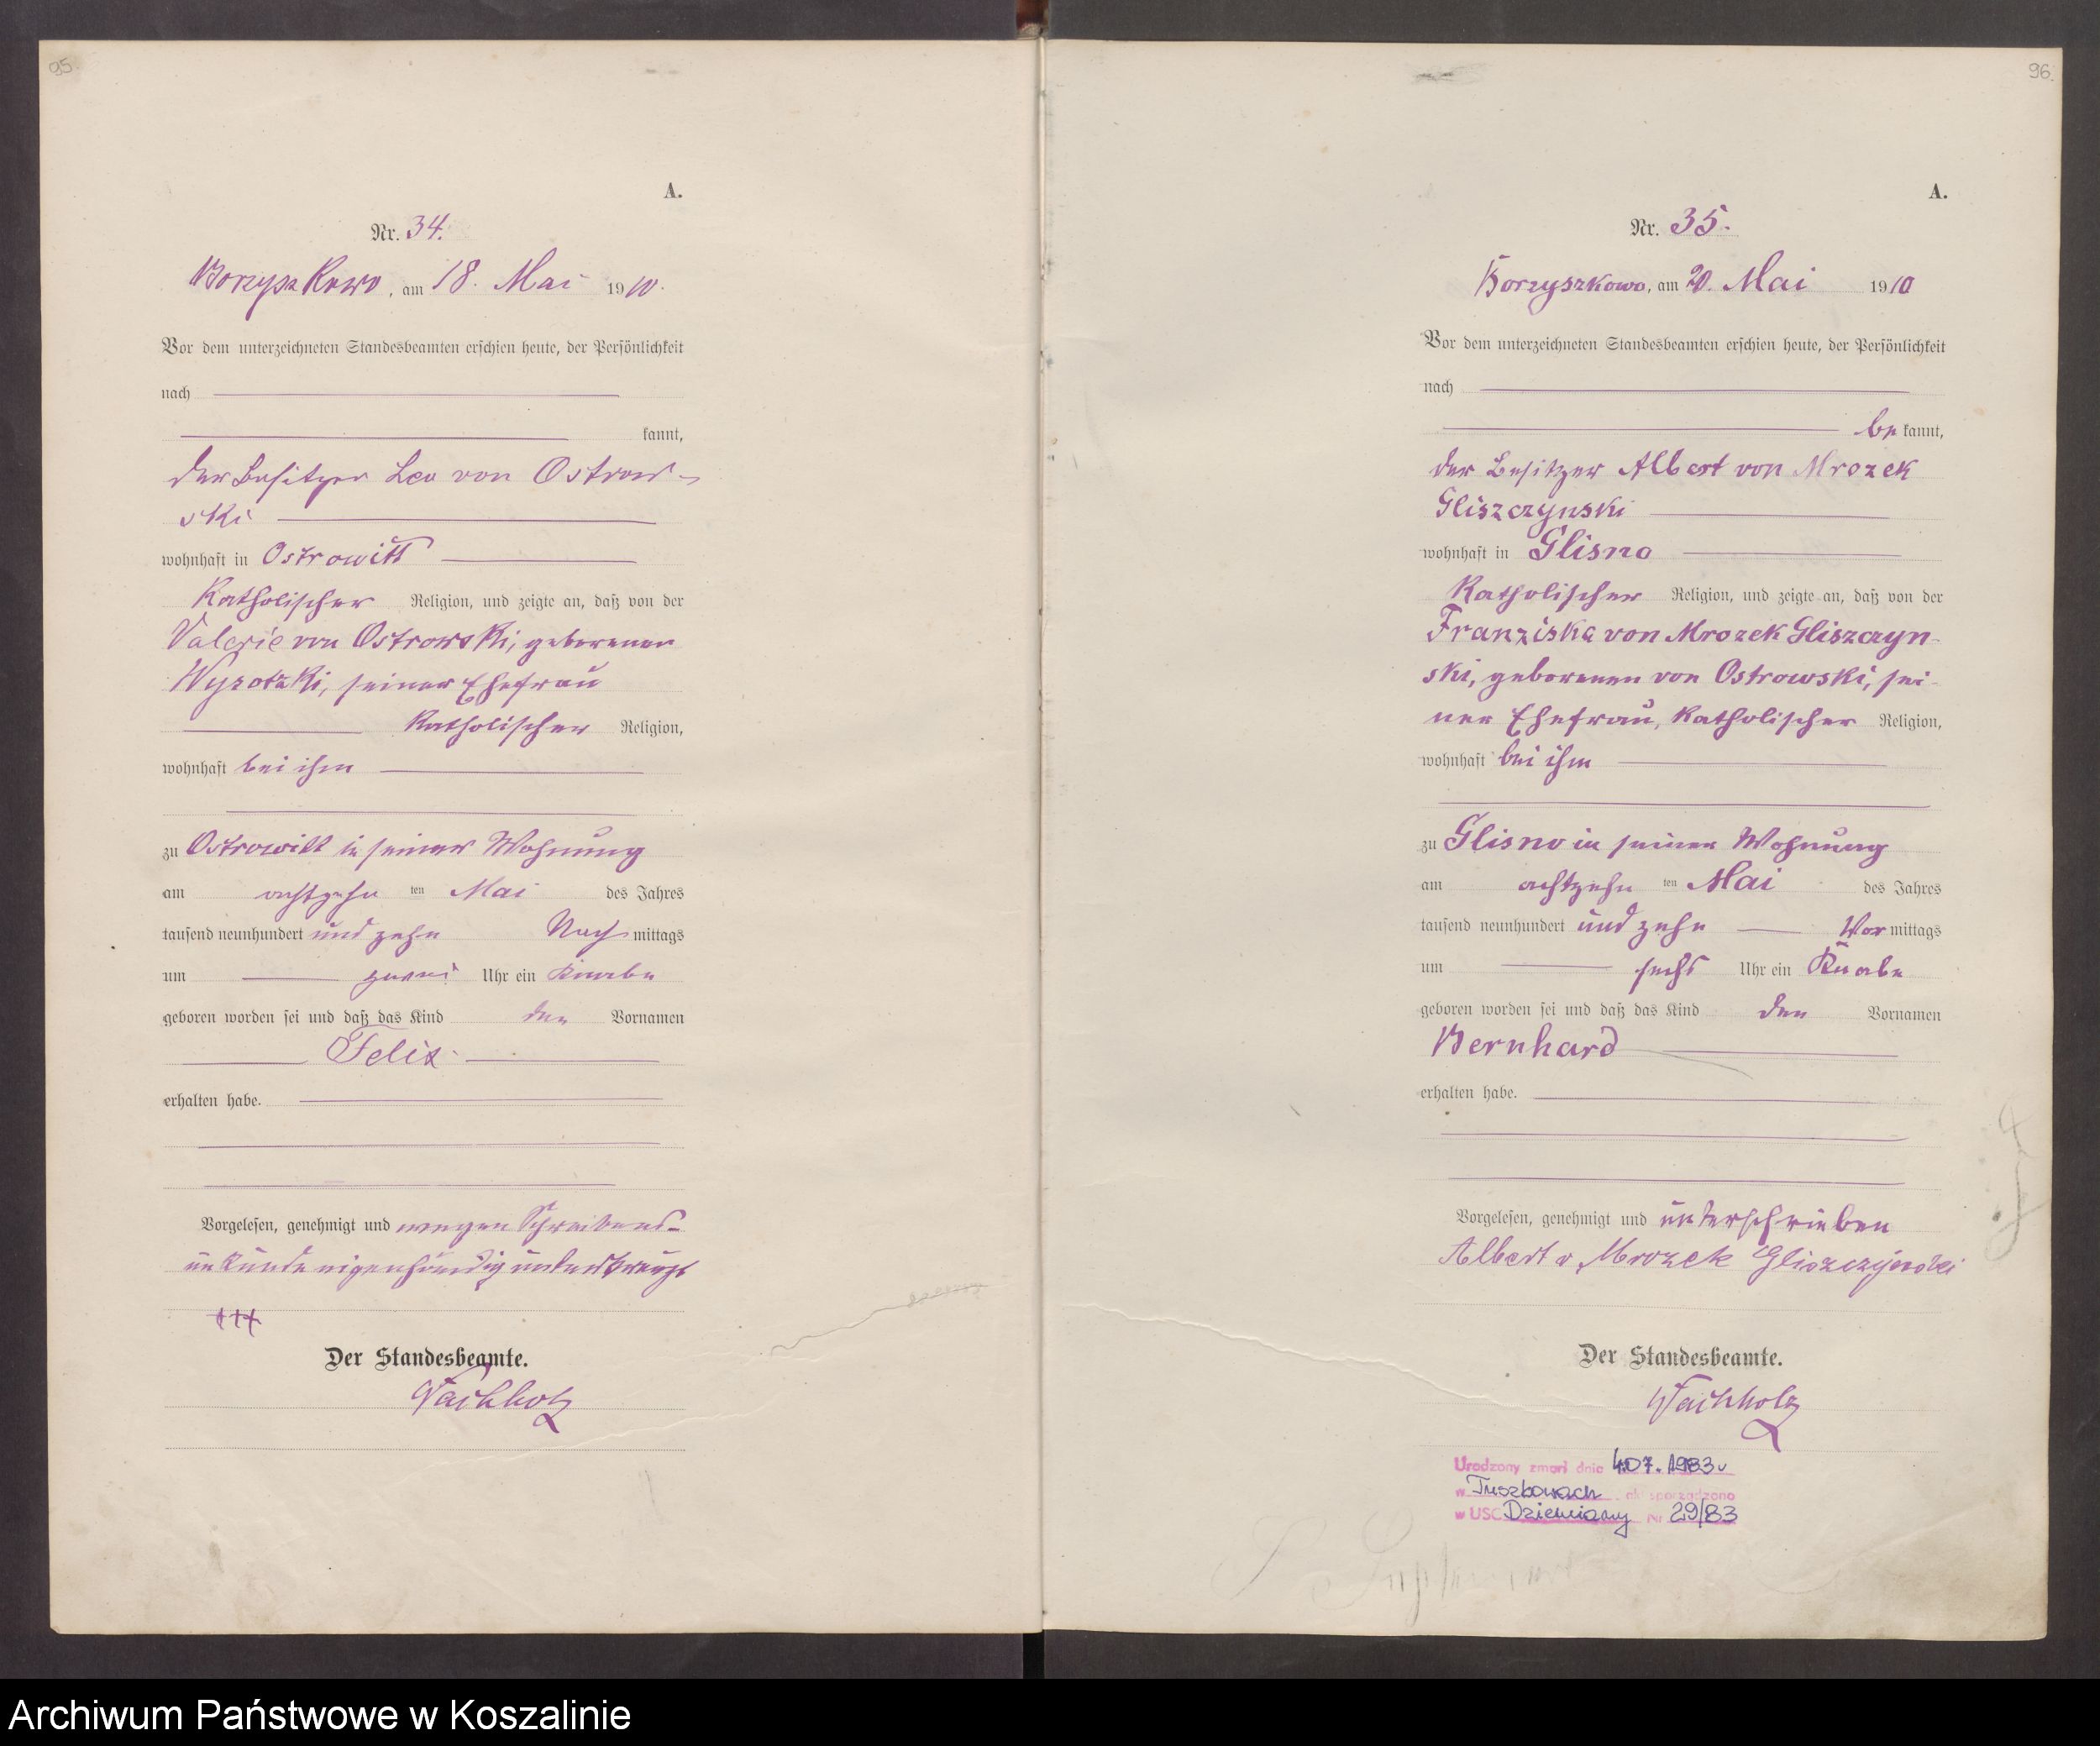 95.
A.
Nr. 34.
Borzyszkowo, am 18. Mai 1910.
Vor dem unterzeichneten Standesbeamten erschien heute, der Persönlichkeit
nach
kannt,
der Besitzer Leo von Ostrow-
ski
wohnhaft in Ostrowitt
katholischer Religion, und zeigte an, daß von der
Valerie von Ostrowski, geborenen
Wysotzki, seiner Ehefrau
katholischer Religion,
wohnhaft bei ihm
zu Ostrowitt in seiner Wohnung
am achtzehn ten Mai des Jahres
tausend neunhundert und zehn Nachmittags
um zwei Uhr ein Knabe
geboren worden sei und daß das Kind den Vornamen
Felix
erhalten habe.
Vorgelesen, genehmigt und wegen Schreibens-
unkunde eigenhändig unterkreuzt
+++
Der Standesbeamte.
96.
A.
Nr. 35.
Borzyszkowo, am 20. Mai 1910
Vor dem unterzeichneten Standesbeamten erschien heute, der Persönlichkeit
nach
bekannt,
der Besitzer Albert von Mrozek
Gliszczynski
wohnhaft in Glisno
katholischer Religion, und zeigte an, daß von der
Franziska von Mrozek Gliszczyn-
ski, geborenen von Ostrowski, sei-
ner Ehefrau, katholischer Religion,
wohnhaft bei ihm
zu Glisno in seiner Wohnung
am achtzehn ten Mai des Jahres
tausend neunhundert und zehn Vormittags
um sechs Uhr ein Knabe
geboren worden sei und daß das Kind den Vornamen
Bernhard
erhalten habe.
Vorgelesen, genehmigt und unterschrieben
Albert v. Mrozek Gliszczynski
Der Standesbeamte.
Urodzony zmarł dnia 4.07.1983 r
w Tuszkowach akt sporządzono
w USC Dziemiany Nr 29/83
Archiwum Państwowe w Koszalinie